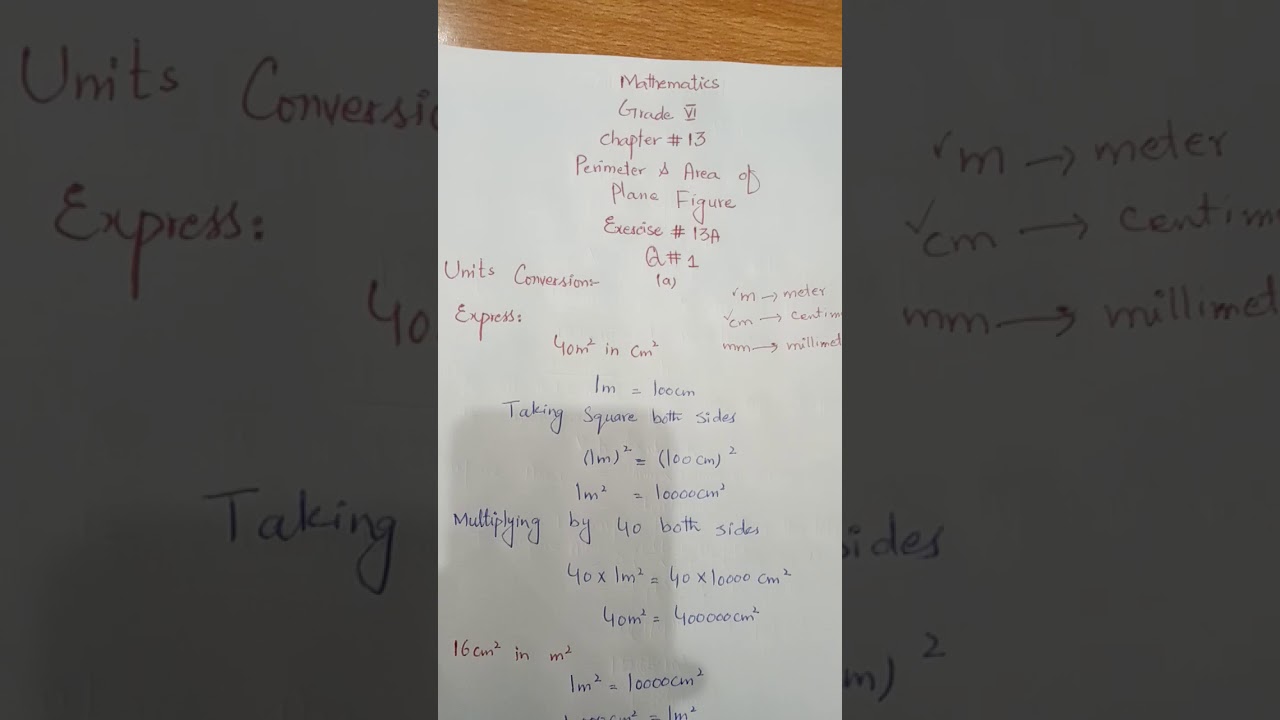 Mathematics
Grade VI
Chapter # 13
Perimeter & Area of
Plane Figure
Exescise # 13A
Q # 1
Units Conversion:-
(a)
m → meter
Express:
cm → centim
40m² in cm²
mm → millimet
1m = 100cm
Taking Square both sides
(1m)² = (100cm)²
1m² = 10000cm²
Multiplying by 40 both sides
40 × 1m² = 40 × 10000 cm²
40m² = 400000cm²
16cm² in m²
1m² = 10000cm²
= 1m²
Units Conversio
Express:
40
Taking
m → meter
cm → centim
mm → millimet
sides
m)²